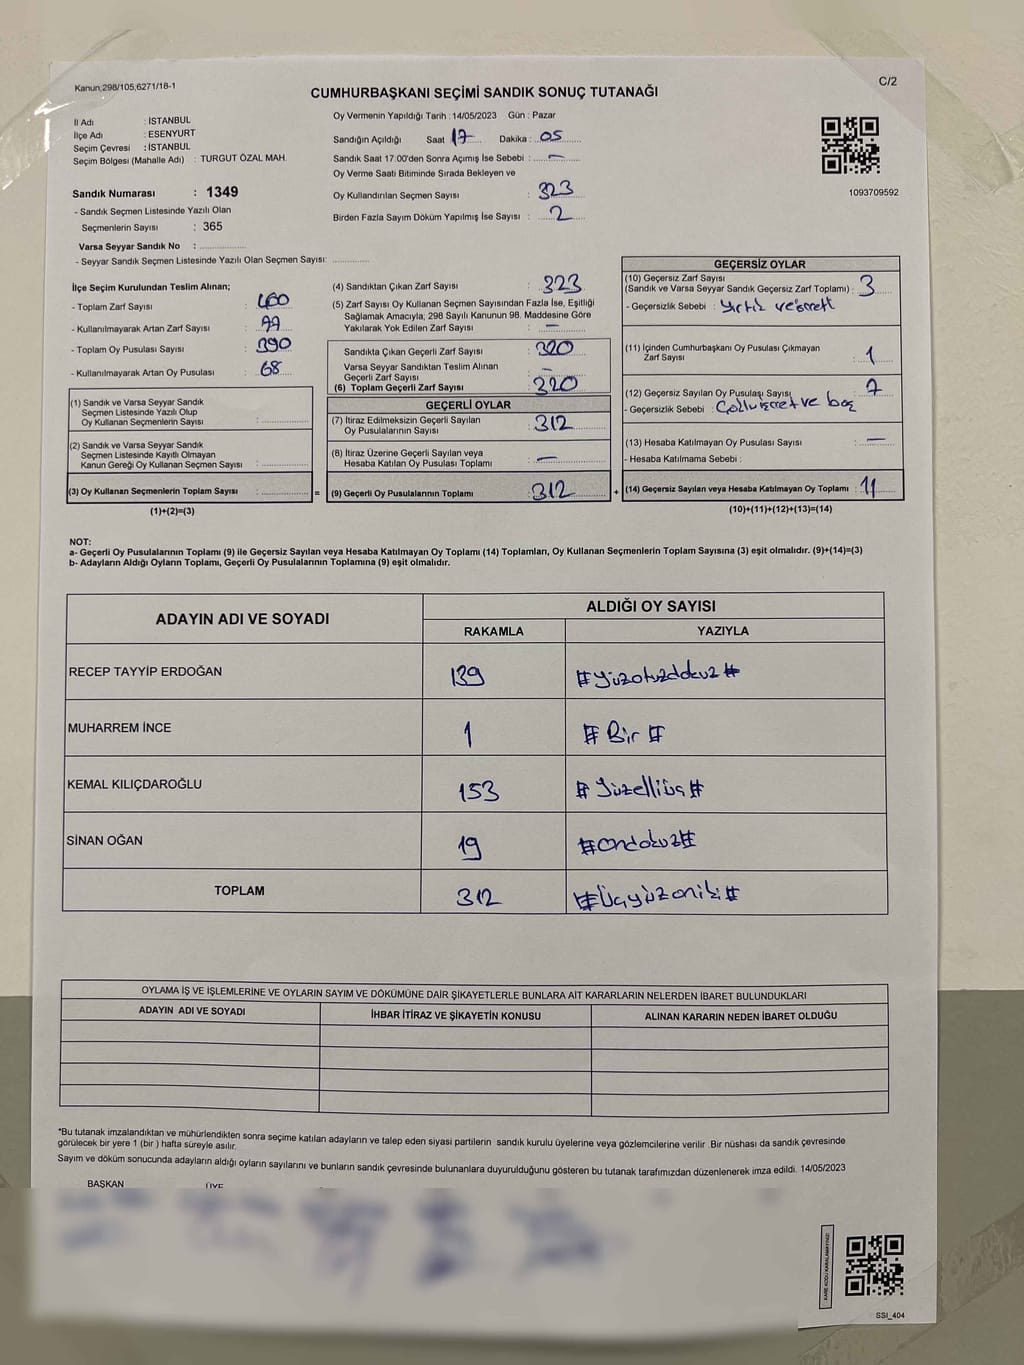 Kanun;298/105;6271/18-1
C/2
CUMHURBAŞKANI SEÇİMİ SANDIK SONUÇ TUTANAĞI
İl Adı : İSTANBUL
İlçe Adı : ESENYURT
Seçim Çevresi : İSTANBUL
Seçim Bölgesi (Mahalle Adı) : TURGUT ÖZAL MAH.
Sandık Numarası : 1349
- Sandık Seçmen Listesinde Yazılı Olan
Seçmenlerin Sayısı : 365
Varsa Seyyar Sandık No :
- Seyyar Sandık Seçmen Listesinde Yazılı Olan Seçmen Sayısı:
Oy Vermenin Yapıldığı Tarih : 14/05/2023 Gün : Pazar
Sandığın Açıldığı Saat 17 Dakika : 05
Sandık Saat 17:00'den Sonra Açımış İse Sebebi : —
Oy Verme Saati Bitiminde Sırada Bekleyen ve
Oy Kullandırılan Seçmen Sayısı : 323
Birden Fazla Sayım Döküm Yapılmış İse Sayısı : 2
1093709592
İlçe Seçim Kurulundan Teslim Alınan;
- Toplam Zarf Sayısı : 400
- Kullanılmayarak Artan Zarf Sayısı : 77
- Toplam Oy Pusulası Sayısı : 390
- Kullanılmayarak Artan Oy Pusulası : 68
(1) Sandık ve Varsa Seyyar Sandık
Seçmen Listesinde Yazılı Olup
Oy Kullanan Seçmenlerin Sayısı :
(2) Sandık ve Varsa Seyyar Sandık
Seçmen Listesinde Kayıtlı Olmayan
Kanun Gereği Oy Kullanan Seçmen Sayısı :
(3) Oy Kullanan Seçmenlerin Toplam Sayısı : =
(1)+(2)=(3)
(4) Sandıktan Çıkan Zarf Sayısı : 323
(5) Zarf Sayısı Oy Kullanan Seçmen Sayısından Fazla İse, Eşitliği
Sağlamak Amacıyla; 298 Sayılı Kanunun 98. Maddesine Göre
Yakılarak Yok Edilen Zarf Sayısı : —
Sandıkta Çıkan Geçerli Zarf Sayısı : 320
Varsa Seyyar Sandıktan Teslim Alınan
Geçerli Zarf Sayısı : —
(6) Toplam Geçerli Zarf Sayısı : 320
GEÇERLİ OYLAR
(7) İtiraz Edilmeksizin Geçerli Sayılan
Oy Pusulalarının Sayısı : 312
(8) İtiraz Üzerine Geçerli Sayılan veya
Hesaba Katılan Oy Pusulası Toplamı : —
(9) Geçerli Oy Pusulalarının Toplamı : 312 +
GEÇERSİZ OYLAR
(10) Geçersiz Zarf Sayısı
(Sandık ve Varsa Seyyar Sandık Geçersiz Zarf Toplamı) : 3
- Geçersizlik Sebebi : Yırtık ve işaretli
(11) İçinden Cumhurbaşkanı Oy Pusulası Çıkmayan
Zarf Sayısı : 1
(12) Geçersiz Sayılan Oy Pusulası Sayısı : 7
- Geçersizlik Sebebi : ve boş
(13) Hesaba Katılmayan Oy Pusulası Sayısı : —
- Hesaba Katılmama Sebebi :
(14) Geçersiz Sayılan veya Hesaba Katılmayan Oy Toplamı : 11
(10)+(11)+(12)+(13)=(14)
NOT:
a- Geçerli Oy Pusulalarının Toplamı (9) ile Geçersiz Sayılan veya Hesaba Katılmayan Oy Toplamı (14) Toplamları, Oy Kullanan Seçmenlerin Toplam Sayısına (3) eşit olmalıdır. (9)+(14)=(3)
b- Adayların Aldığı Oyların Toplamı, Geçerli Oy Pusulalarının Toplamına (9) eşit olmalıdır.
ADAYIN ADI VE SOYADI
ALDIĞI OY SAYISI
RAKAMLA YAZIYLA
RECEP TAYYİP ERDOĞAN 139 #Yüzotuzdokuz#
MUHARREM İNCE 1 #Bir#
KEMAL KILIÇDAROĞLU 153 #Yüzelliüç#
SİNAN OĞAN 19 #Ondokuz#
TOPLAM 312 #Üçyüzoniki#
OYLAMA İŞ VE İŞLEMLERİNE VE OYLARIN SAYIM VE DÖKÜMÜNE DAİR ŞİKAYETLERLE BUNLARA AİT KARARLARIN NELERDEN İBARET BULUNDUKLARI
ADAYIN ADI VE SOYADI İHBAR İTİRAZ VE ŞİKAYETİN KONUSU ALINAN KARARIN NEDEN İBARET OLDUĞU
*Bu tutanak imzalandıktan ve mühürlendikten sonra seçime katılan adayların ve talep eden siyasi partilerin sandık kurulu üyelerine veya gözlemcilerine verilir .Bir nüshası da sandık çevresinde
görülecek bir yere 1 (bir ) hafta süreyle asılır.
Sayım ve döküm sonucunda adayların aldığı oyların sayılarını ve bunların sandık çevresinde bulunanlara duyurulduğunu gösteren bu tutanak tarafımızdan düzenlenerek imza edildi. 14/05/2023
BAŞKAN ÜYE
KARE KODU KARALAMAYINIZ!
SSI_404